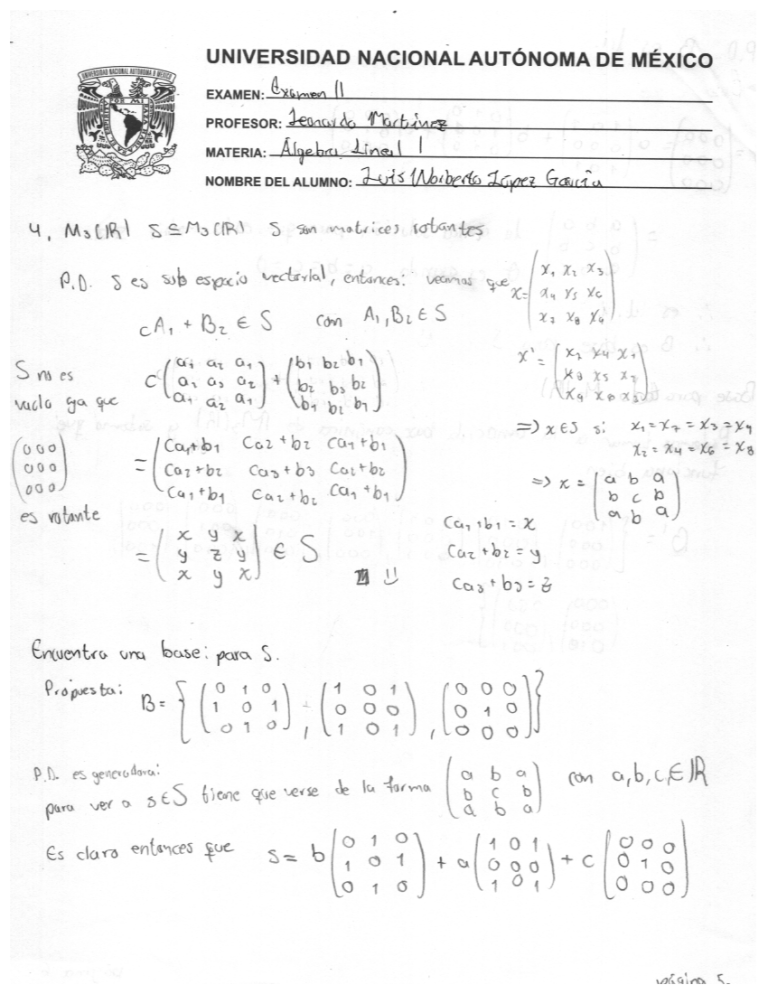 UNIVERSIDAD NACIONAL AUTÓNOMA DE MÉXICO
EXAMEN: Examen II
PROFESOR: Leonardo Martínez
MATERIA: Álgebra Lineal I
NOMBRE DEL ALUMNO: Luis Norberto López García
4. M3(ℝ) S ⊆ M3(ℝ) S son matrices rotantes
P.D. S es sub espacio vectorial, entonces: veamos que x = (x1 x2 x3
x4 x5 x6
x7 x8 x9)
cA1 + B2 ∈ S con A1, B2 ∈ S
x' = (x7 x4 x1
x8 x5 x2
x9 x6 x3)
S no es
vacío ya que
(0 0 0
0 0 0
0 0 0)
es rotante
c(a1 a2 a1
a2 a3 a2
a1 a2 a1) + (b1 b2 b1
b2 b3 b2
b1 b2 b1)
= (ca1+b1 ca2+b2 ca1+b1
ca2+b2 ca3+b3 ca2+b2
ca1+b1 ca2+b2 ca1+b1)
= (x y x
y z y
x y x) ∈ S
=> x ∈ S si x1 = x7 = x3 = x9
x2 = x4 = x6 = x8
=> x = (a b a
b c b
a b a)
ca1+b1 = x
ca2+b2 = y
ca3+b3 = z
Encuentra una base: para S.
Propuesta: B = {(0 1 0
1 0 1
0 1 0), (1 0 1
0 0 0
1 0 1), (0 0 0
0 1 0
0 0 0)}
P.D. es generadora:
para ver a s∈S tiene que verse de la forma (a b a
b c b
a b a) con a,b,c,∈ℝ
Es claro entonces que s = b(0 1 0
1 0 1
0 1 0) + a(1 0 1
0 0 0
1 0 1) + c(0 0 0
0 1 0
0 0 0)
página 5.